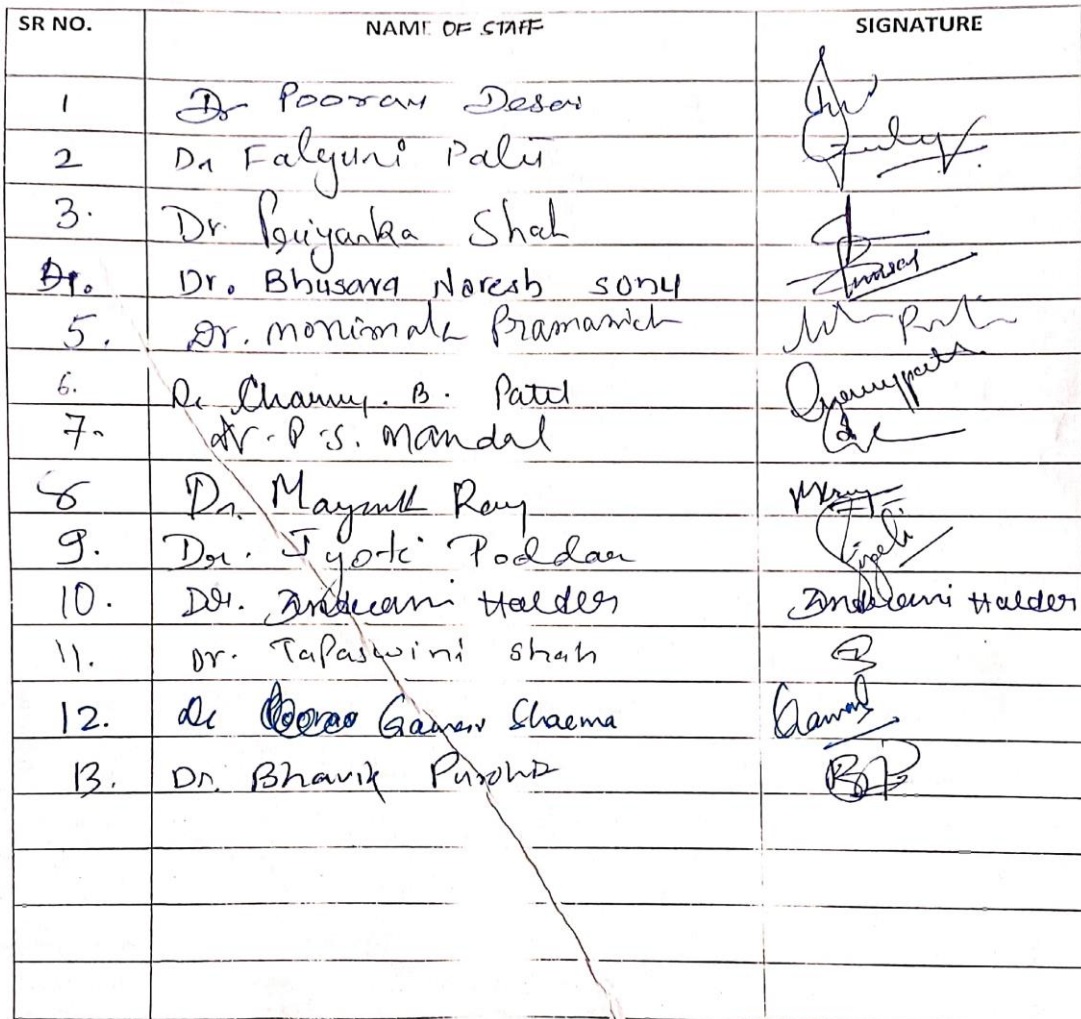 SR NO. NAME OF STAFF SIGNATURE
1 Dr Pooran Desai
2 Dr Falguni Palit
3. Dr. Priyanka Shah
Dr. Bhusara Naresh sony
5. Dr. monimala Pramanick
6. Dr Charmy. B. Patel
7. Dr. P. S. Mandal
8 Dr. Mayank Ray
9. Dr. Jyoti Poddar
10. Dr. Indrani Halder Indrani Halder
11. Dr. Tapaswini Shah
12. Dr Gaurav Sharma
13. Dr. Bhavik Purohit